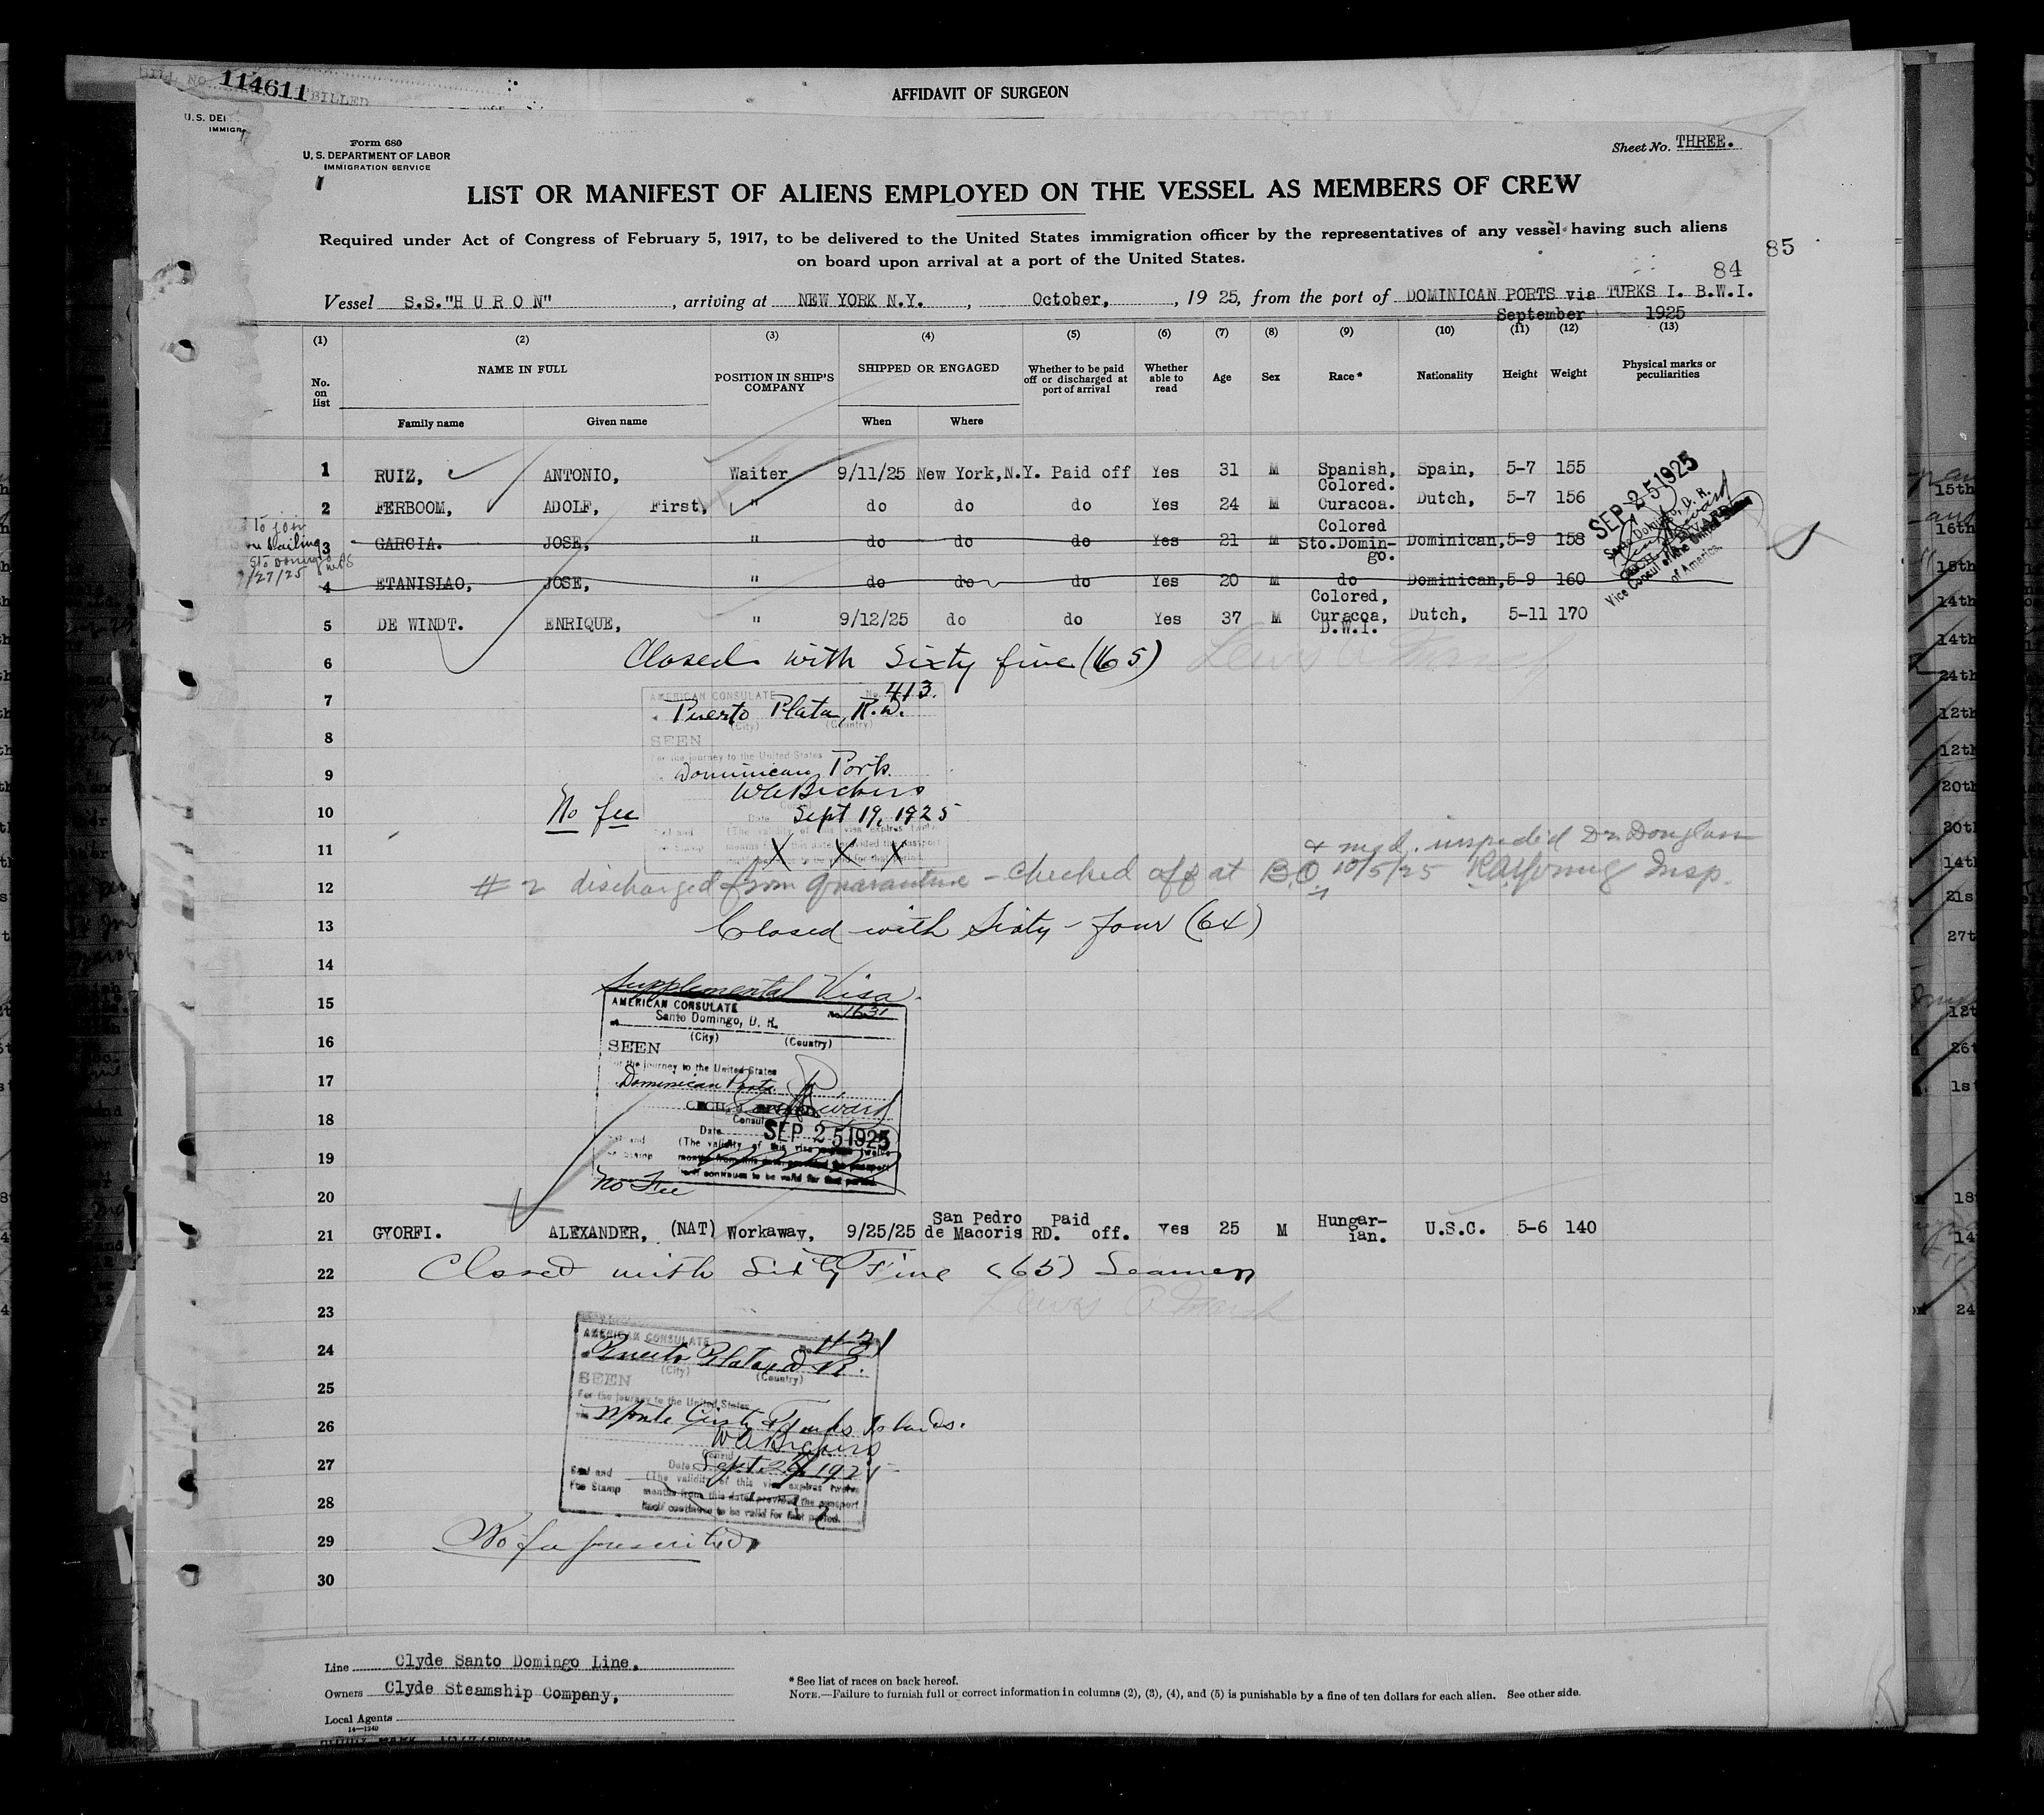 BILL NO. 114611 BILLED
AFFIDAVIT OF SURGEON
U.S. DE
IMMIGR
Form 680
U. S. DEPARTMENT OF LABOR
IMMIGRATION SERVICE
Sheet No. THREE.
LIST OR MANIFEST OF ALIENS EMPLOYED ON THE VESSEL AS MEMBERS OF CREW
Required under Act of Congress of February 5, 1917, to be delivered to the United States immigration officer by the representatives of any vessel having such aliens
on board upon arrival at a port of the United States.
85
84
Vessel S.S."H U R O N", arriving at NEW YORK N.Y., October, , 19 25, from the port of DOMINICAN PORTS via TURKS I. B.W.I.
September 1925
(1) (2) (3) (4) (5) (6) (7) (8) (9) (10) (11) (12) (13)
No. on list NAME IN FULL POSITION IN SHIP'S COMPANY SHIPPED OR ENGAGED Whether to be paid off or discharged at port of arrival Whether able to read Age Sex Race* Nationality Height Weight Physical marks or peculiarities
Family name Given name When Where
1 RUIZ, ANTONIO, Waiter 9/11/25 New York,N.Y. Paid off Yes 31 M Spanish, Spain, 5-7 155
2 FERBOOM, ADOLF, First, " do do do Yes 24 M Colored. Curacoa. Dutch, 5-7 156
3 GARCIA. JOSE, " do do do Yes 21 M Colored Sto.Domin-go. Dominican, 5-9 158
4 ETANISLAO, JOSE, " do do do Yes 20 M do Dominican, 5-9 160
5 DE WINDT. ENRIQUE, " 9/12/25 do do Yes 37 M Colored, Curacoa, D.W.I. Dutch, 5-11 170
To join
Sailing
Sto Domingo
9/27/25
SEP 25 1925
Santo Domingo, D. R.
Vice Consul of the United States
of America.
6 Closed with Sixty five (65) Lewis A Marsh
7 AMERICAN CONSULATE No. 413.
Puerto Plata, R.D.
(City) (Country)
8 SEEN
For the journey to the United States
9 Dominican Ports.
WA Bickers
10 No fee Date Sept 19, 1925
(The validity of this visa expires twelve
11 months from this date provided the passport
X X X
& med. inspected Dr. Douglass
12 # 2 discharged from Quarantine - checked off at B.O. 10/5/25 Insp.
13 Closed with Sixty-four (64)
14
Supplemental Visa.
15 AMERICAN CONSULATE No. 1631
Santo Domingo, D. R.
16 (City) (Country)
SEEN
For the journey to the United States
17 Dominican Ports.
18 Consul
Date SEP 25 1925
(The validity of this visa expires twelve
19 months from this date provided the passport
continues to be valid for that period.
No Fee
20
21 GYORFI. ALEXANDER, (NAT) Workaway, 9/25/25 San Pedro de Macoris RD. Paid off. Yes 25 M Hungar-ian. U.S.C. 5-6 140
22 Closed with Sixty Five (65) Seamen
23 Lewis A Marsh
AMERICAN CONSULATE No. 421
24 Puerto Plata, D. R.
(City) (Country)
25 SEEN
For the journey to the United States
26 via Monte Cristy & Turks Islands.
WA Bickers
27 Consul
Date Sept. 29, 1925
Seal and (The validity of this visa expires twelve
28 Fee Stamp months from this date provided the passport
continues to be valid for that period.
29 No fee prescribed
30
Line Clyde Santo Domingo Line,
Owners Clyde Steamship Company,
Local Agents
14—1240
* See list of races on back hereof.
NOTE.—Failure to furnish full or correct information in columns (2), (3), (4), and (5) is punishable by a fine of ten dollars for each alien. See other side.